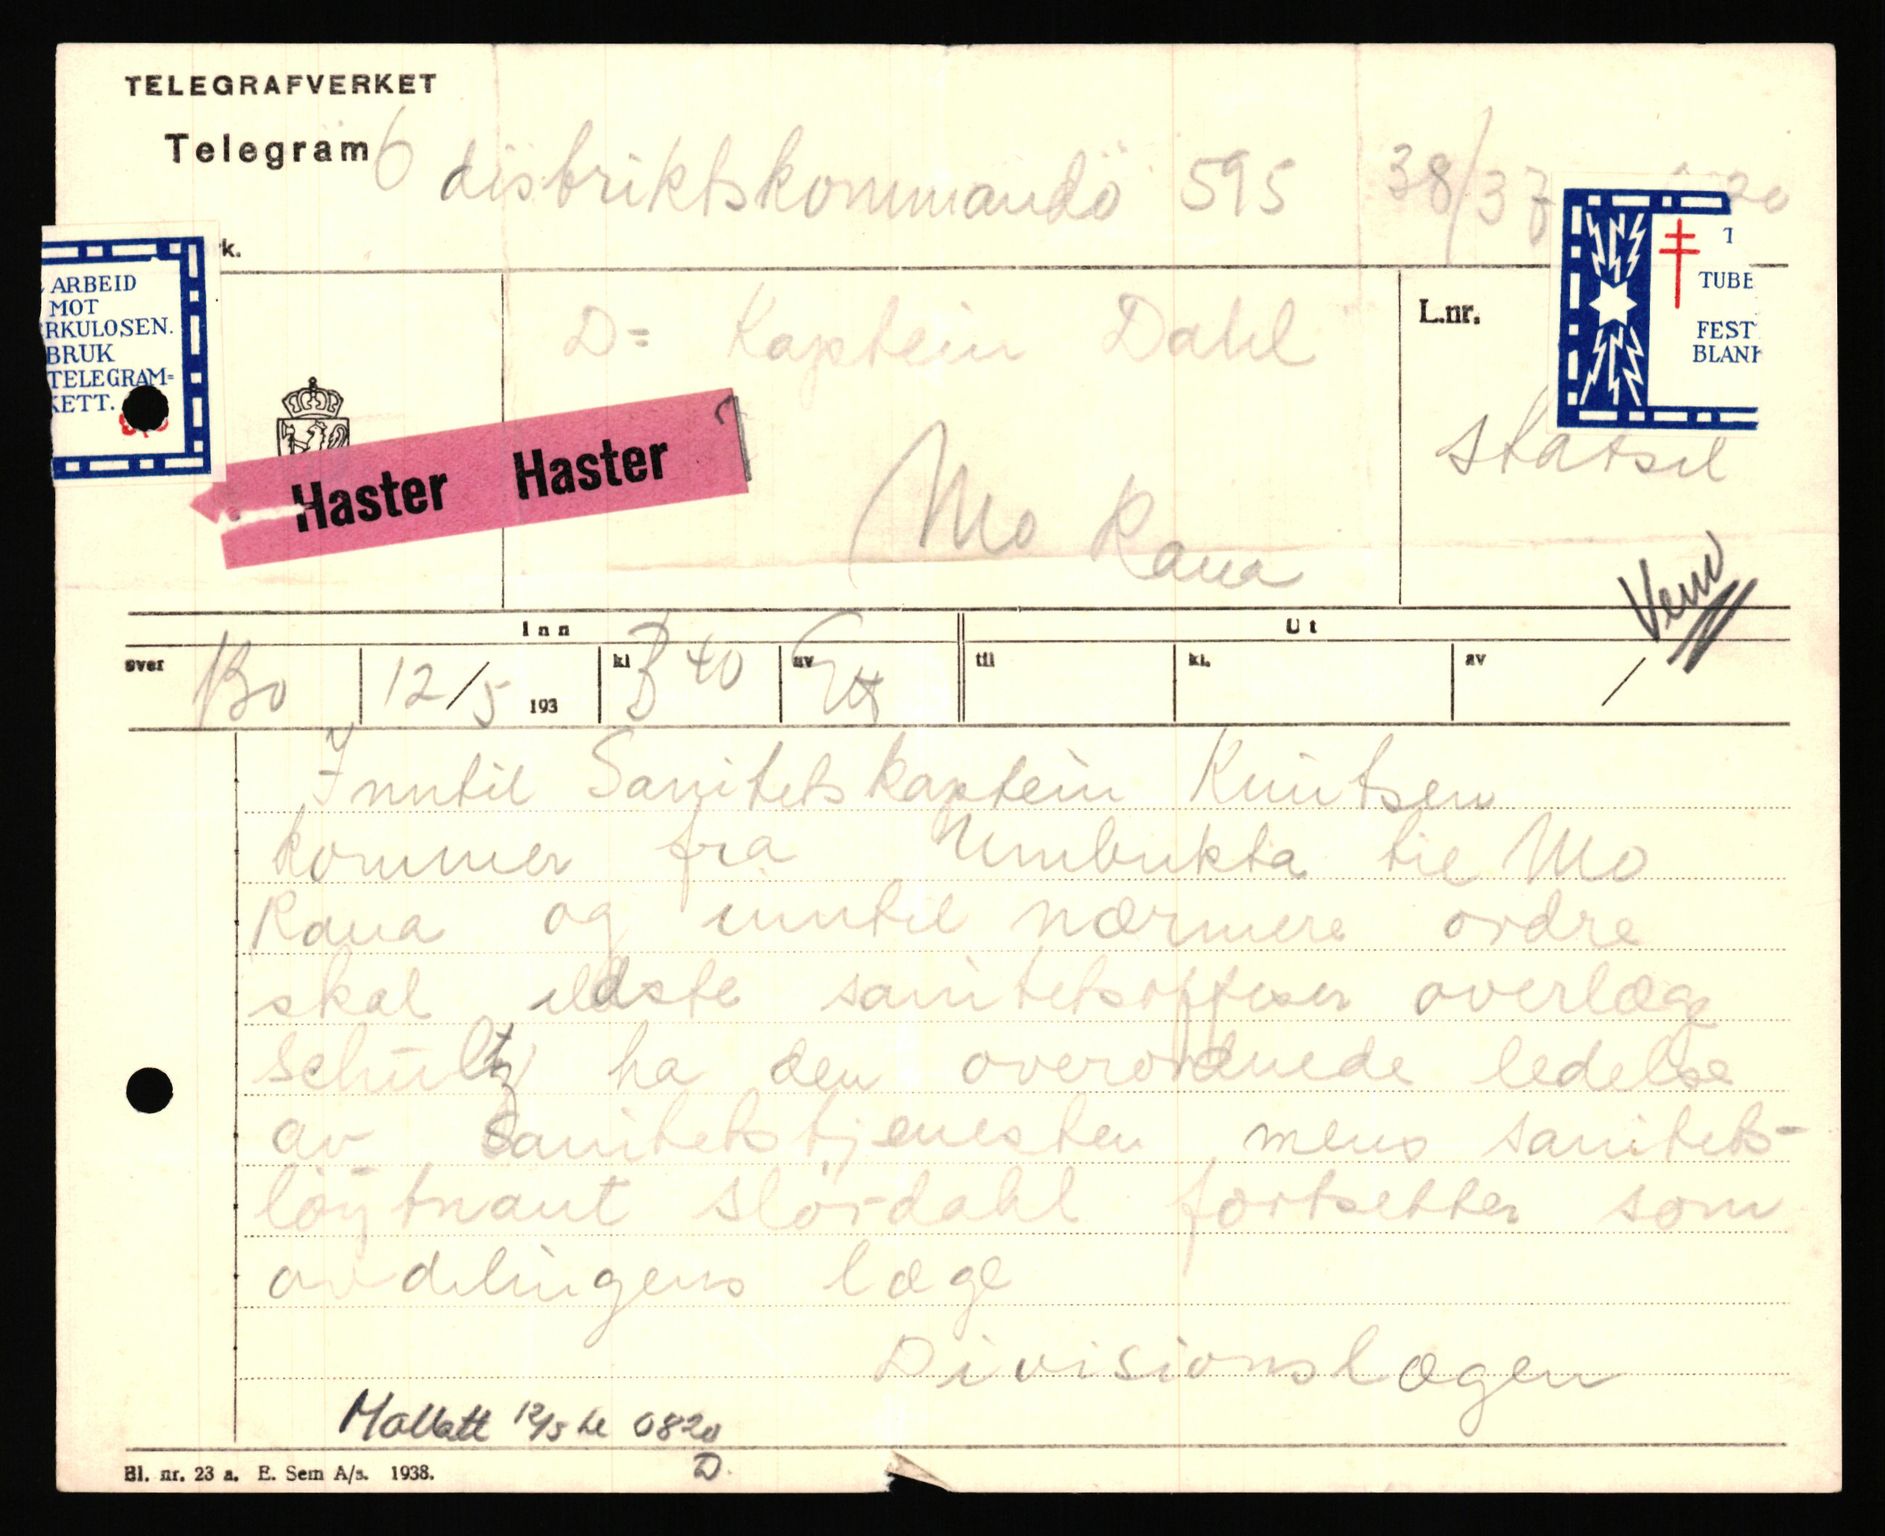 TELEGRAFVERKET
Telegram
6 distriktskommando 595 38/37 20
k.
ARBEID
MOT
RKULOSEN.
BRUK
TELEGRAM=
KETT.
D= Kaptein Dahl
L.nr.
TUBE
FEST
BLANK
Haster Haster
Mo Rana
statsil
Inn
Ut
over Bo 12/5 193 kl 40 av til kl. av
Inntil Sanitetskaptein Knutsen
kommer fra Umbukta til Mo
Rana og inntil nærmere ordre
skal eldste sanitetsoffiser overlæge
Schultz ha den overordnede ledelse
av Sanitetstjenesten mens sanitets-
løytnant slördahl fortsetter som
avdelingens læge
Divisionslægen
Mottatt 12/5 kl 0820
D.
Bl. nr. 23 a. E. Sem A/s. 1938.